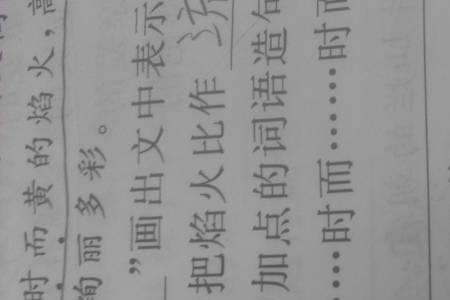 时而黄的焰火，高
绚丽多彩。
”画出文中表示
把焰火比作
加点的词语造句
……时而……时而